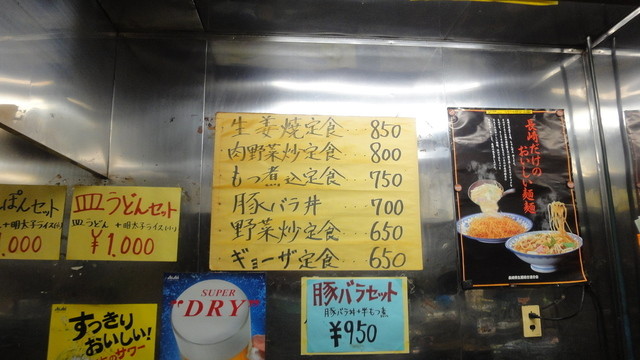 生姜焼定食 850
肉野菜炒定食 800
もつ煮込定食 750
豚バラ丼 700
野菜炒定食 650
ギョーザ定食 650
ぱんセット
+明太子ライス(小)
,000
皿うどんセット
皿うどん +明太子ライス(小)
¥1,000
長崎だけの
おいしい麺麺
Asahi
すっきり
おいしい!
サワー
Asahi
SUPER
"DRY"
豚バラセット
豚バラ丼+半もつ煮
¥950